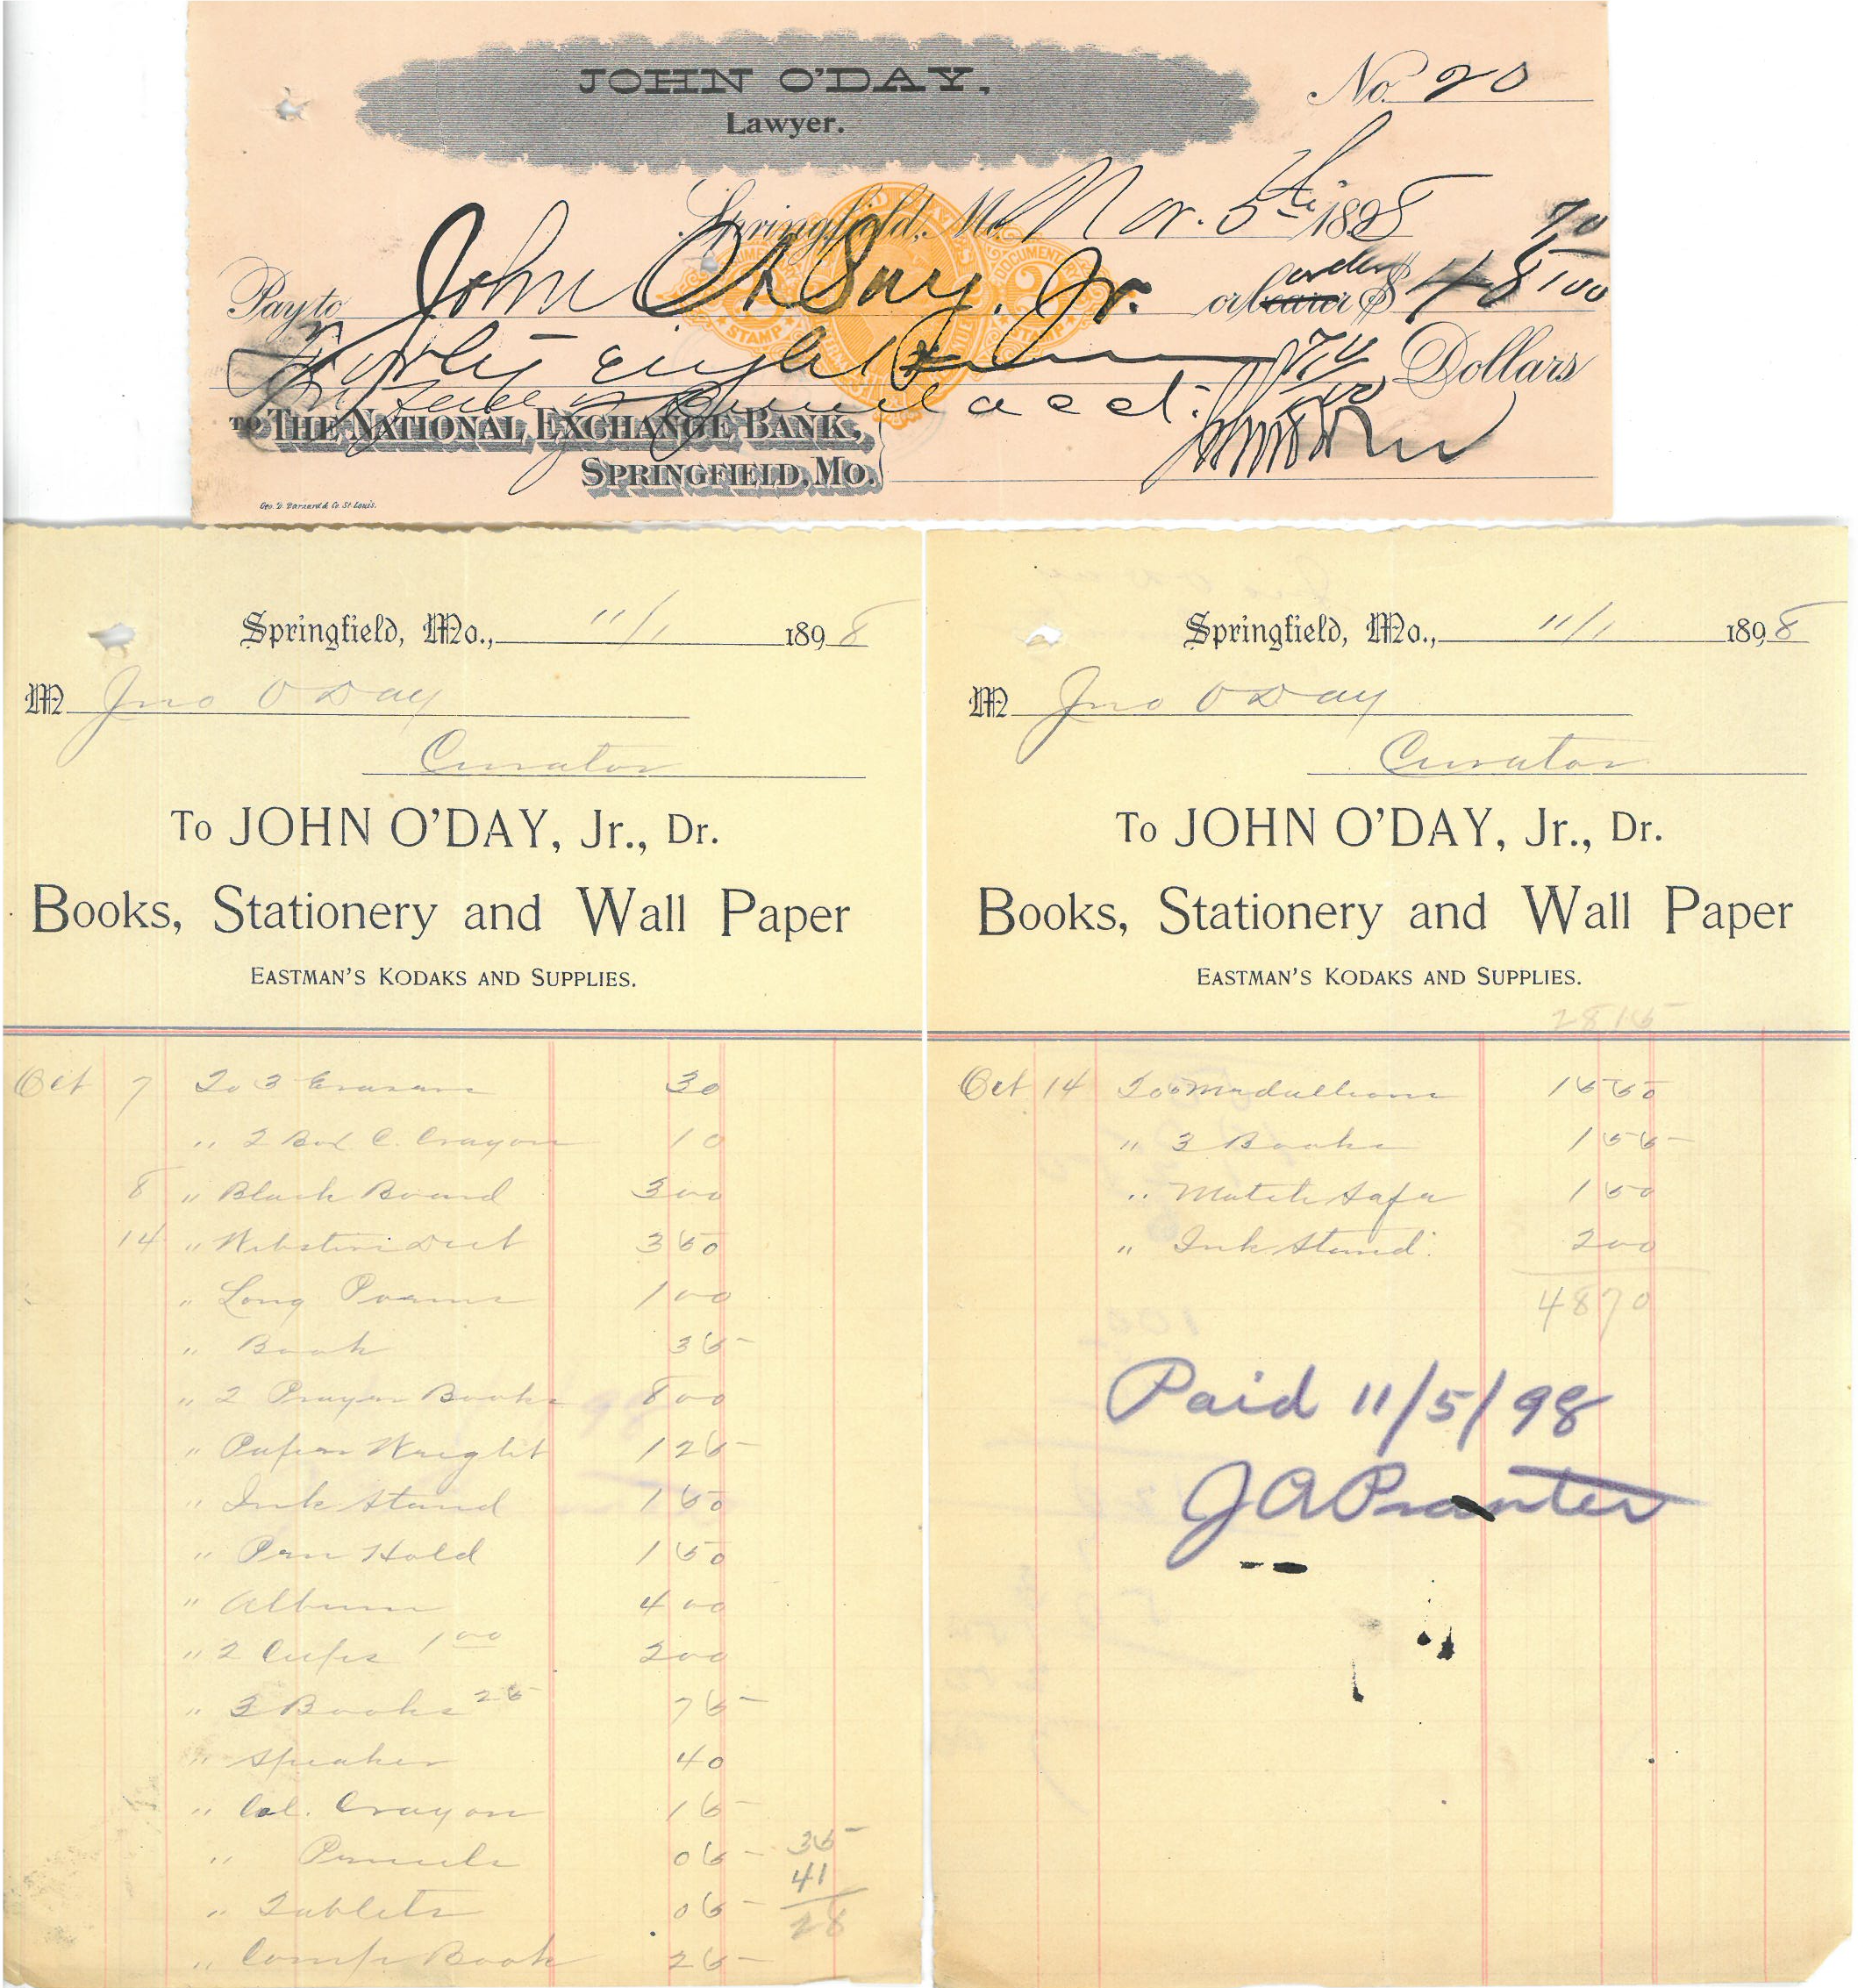 JOHN O'DAY,
Lawyer.
No. 20
Springfield, Mo. Nov. 5th 1898
Pay to John O'Day, Jr. or bearer order $ 48 70/100
Forty eight 70/100 Dollars
acct.
TO THE NATIONAL EXCHANGE BANK,
SPRINGFIELD, MO.
Geo. D. Barnard & Co. St. Louis.
Springfield, Mo., 11/1 1898
M Jno O Day
Curator
To JOHN O'DAY, Jr., Dr.
Books, Stationery and Wall Paper
EASTMAN'S KODAKS AND SUPPLIES.
Oct 7 To 3 Erasers 30
" 2 Box C. Crayon 10
8 " Black Board 300
14 " Websters Dict 350
" Long Poems 100
" Book 35
" 2 Prayer Books 800
" Paper Weight 125
" Ink Stand 150
" Pen Hold 150
" Album 400
" 2 Cups 1 00 200
" 3 Books 25 75
" Speaker 40
" Col. Crayon 15
" Pencils 05 35
41
" Tablets 05 28
" Comp Book 25
Springfield, Mo., 11/1 1898
M Jno O Day
Curator
To JOHN O'DAY, Jr., Dr.
Books, Stationery and Wall Paper
EASTMAN'S KODAKS AND SUPPLIES.
2815
Oct 14 To 6 Medallions 1550
" 3 Books 155
" Match Safe 150
" Ink Stand 200
4870
Paid 11/5/98
J A Pranter